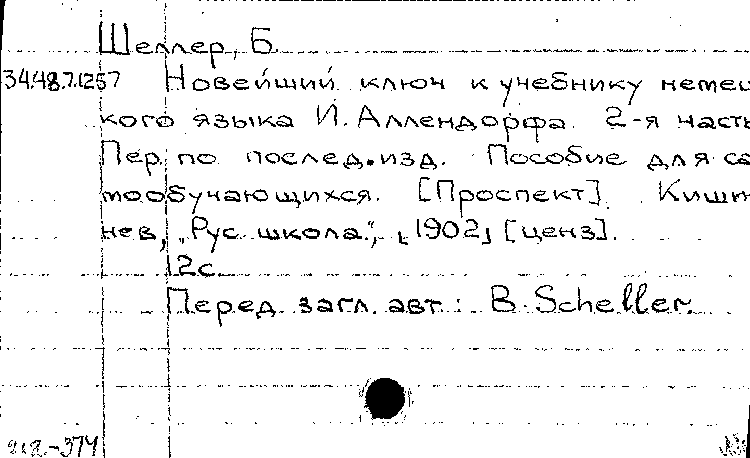 Шеллер, Б.
34.48.7.1257 Новейший ключ к учебнику немец
кого языка И. Аллендорфа. 2-я часть
Пер. по послед. изд. Пособие для са
мообучающихся. [Проспект]. Киши
нев, "Рус. школа", [1902] [ценз].
12с.
Перед загл. авт.: B. Scheller.